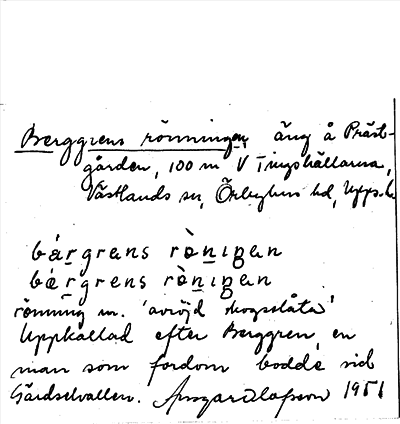 Berggrens rönningen, äng å Präst-
gården, 100 m V Tingshällarna,
Västlands sn, Örbyhus hd, Upps. l.
bárgrens rònıŋen
bérgrens rònıŋen
rönning m. 'avröjd skogsslåta'
Uppkallad efter Berggren, en
man som fordom bodde vid
Gärdselvallen. Ansgar Olafsson 1951